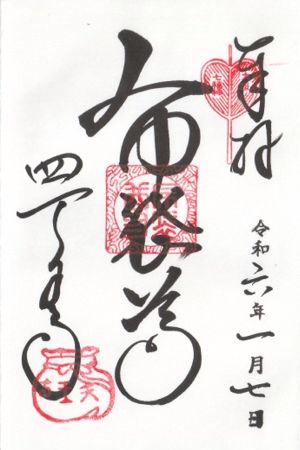 奉拝
令和六年一月七日
布袋尊
四天王寺